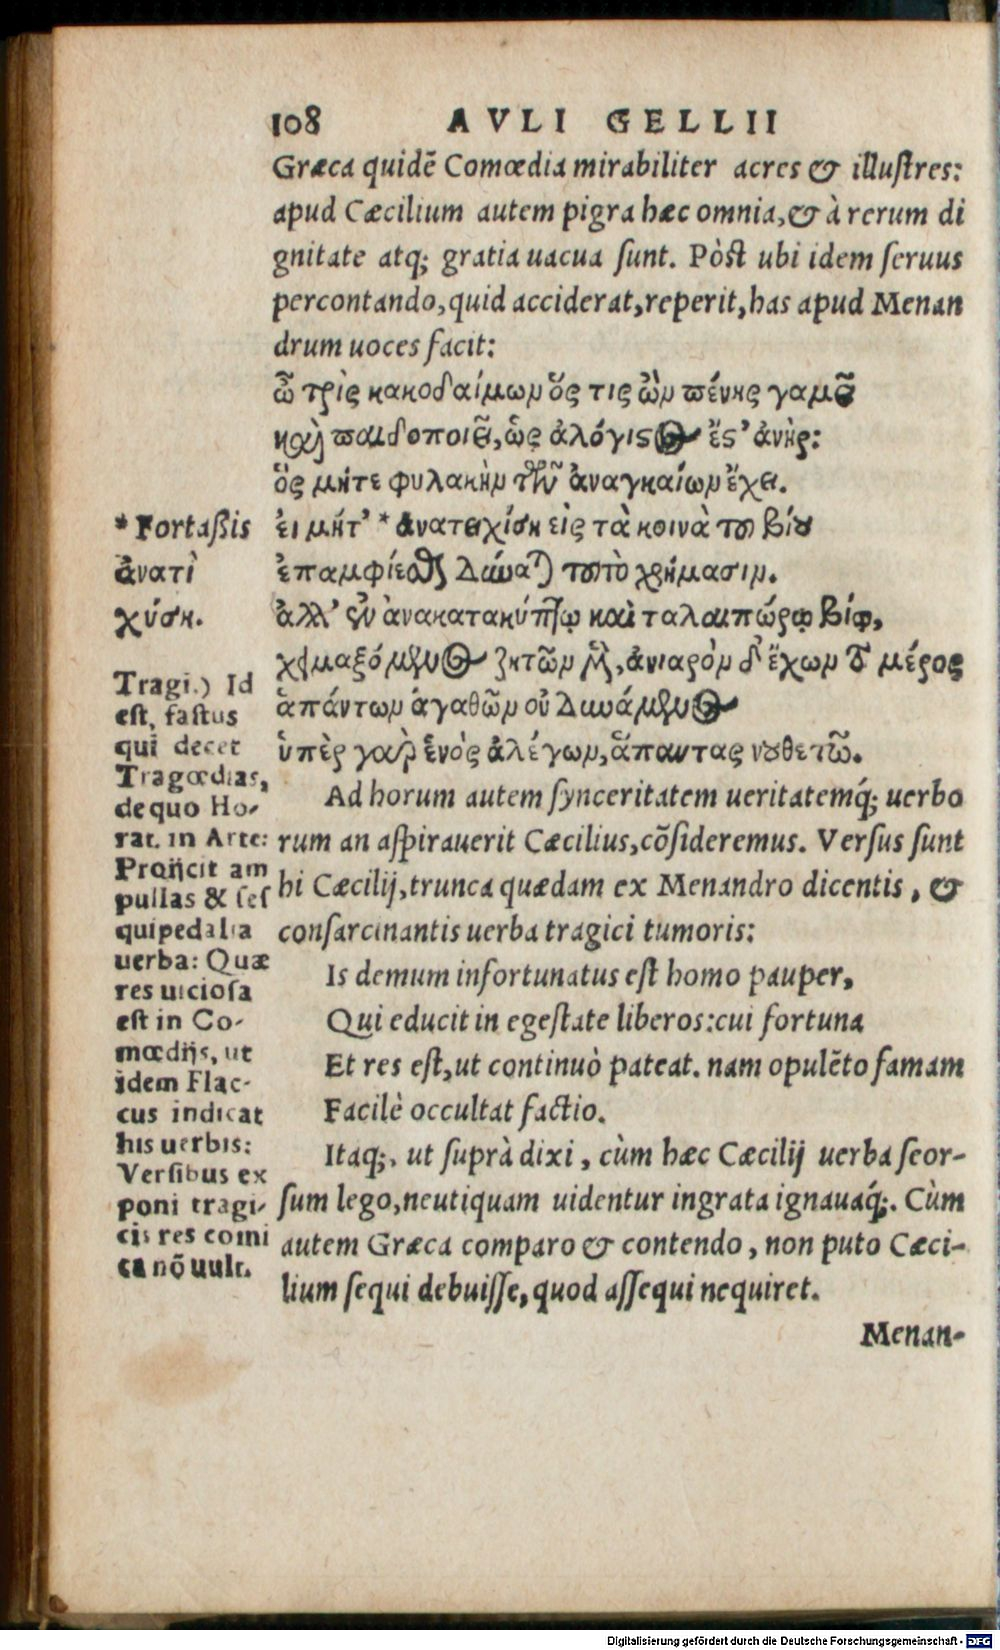 108 AVLI GELLII
Græca quidē Comœdia mirabiliter acres & illustres:
apud Cæcilium autem pigra hæc omnia, & à rerum di
gnitate atq; gratia uacua sunt. Pòst ubi idem seruus
percontando, quid acciderat, reperit, has apud Menan
drum uoces facit:
ὦ τρὶς κακοδαίμων ὅς τις ὢν πένης γαμεῖ
καὶ παιδοποιεῖ, ὡς ἀλόγιστος ἔστ' ἀνὴρ:
ὃς μήτε φυλακὴν τῶν ἀναγκαίων ἔχει.
ει μήτ' * ἀνατειχίση εἰς τὰ κοινὰ του βίου
ἐπαμφιέσαι δύναται τουτὸ χρήμασιν.
ἀλλ' ἐν ἀνακατακύπτῳ καὶ ταλαιπώρῳ βίῳ,
χειμαζόμενος ζητῶν μὲν, ἀνιαρὸν δ' ἔχων τὸ μέρος
ἁπάντων ἀγαθῶν οὐ δυνάμενος
ὑπὲρ γαρ ἑνὸς ἀλέγων, ἅπαντας νουθετῶ.
Ad horum autem synceritatem ueritatemq́; uerbo
rum an aspirauerit Cæcilius, cōsideremus. Versus sunt
hi Cæcilij, trunca quædam ex Menandro dicentis, &
consarcinantis uerba tragici tumoris:
Is demum infortunatus est homo pauper,
Qui educit in egestate liberos: cui fortuna
Et res est, ut continuò pateat. nam opulēto famam
Facilè occultat factio.
Itaq;, ut suprà dixi, cùm hæc Cæcilij uerba seor-
sum lego, neutiquam uidentur ingrata ignauaq́;. Cùm
autem Græca comparo & contendo, non puto Cæci-
lium sequi debuisse, quod assequi nequiret.
Menan-
* Fortaßis
ἀνατὶ
χύση.
Tragi.) Id
est, fastus
qui decet
Tragœdias,
de quo Ho-
rat. in Arte:
Proijcit am
pullas & ses
quipedalia
uerba: Quæ
res uiciosa
est in Co-
mœdijs, ut
idem Flac-
cus indicat
his uerbis:
Versibus ex
poni tragi-
cis res comi
ca nō uult.
Digitalisierung gefördert durch die Deutsche Forschungsgemeinschaft - DFG